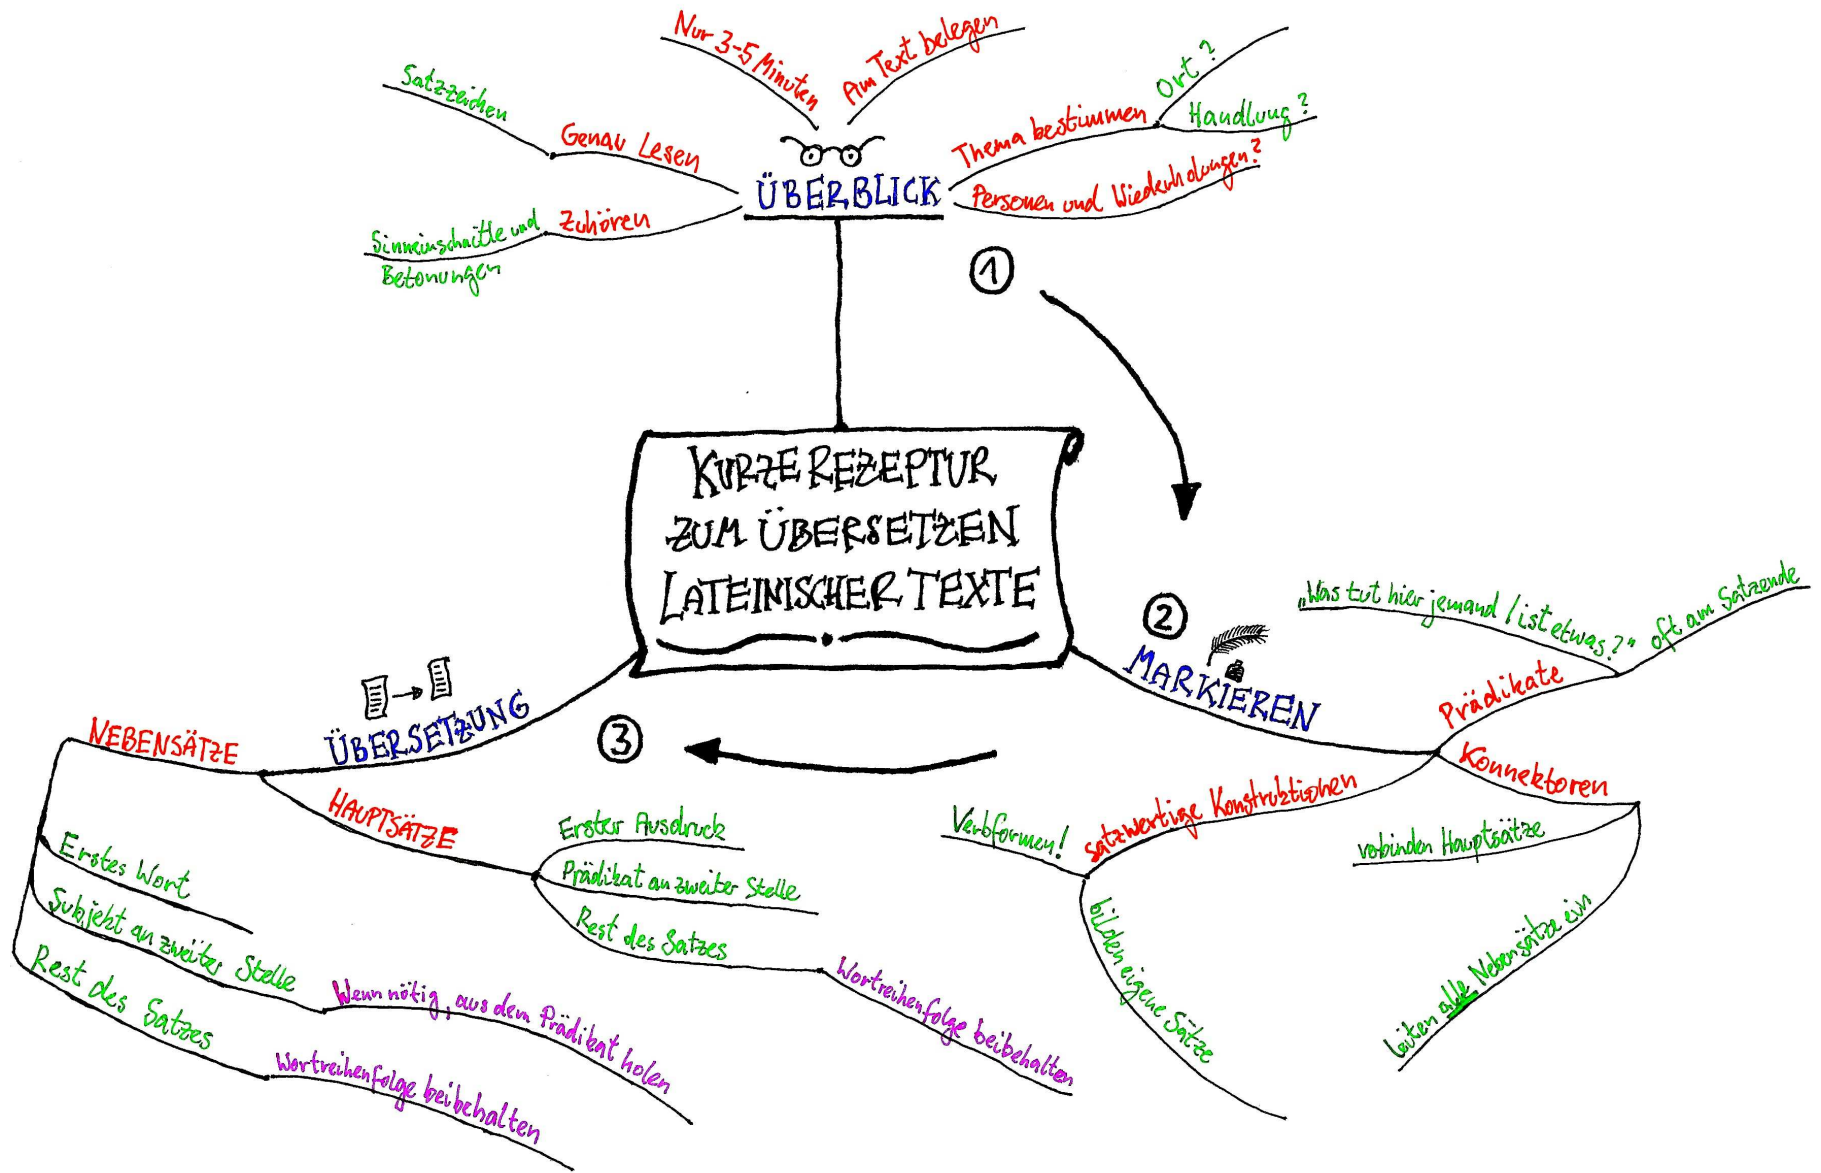 KURZE REZEPTUR
ZUM ÜBERSETZEN
LATEINISCHER TEXTE
ÜBERBLICK
Nur 3-5 Minuten
Am Text belegen
Genau Lesen
Satzzeichen
Zuhören
Sinneinschnitte und
Betonungen
Thema bestimmen
Ort?
Handlung?
Personen und Wiederholungen?
1
2
MARKIEREN
Prädikate
„Was tut hier jemand / ist etwas?"
oft am Satzende
Konnektoren
verbinden Hauptsätze
leiten alle Nebensätze ein
satzwertige Konstruktionen
Verbformen!
bilden eigene Sätze
3
ÜBERSETZUNG
HAUPTSÄTZE
Erster Ausdruck
Prädikat an zweiter Stelle
Rest des Satzes
Wortreihenfolge beibehalten
NEBENSÄTZE
Erstes Wort
Subjekt an zweiter Stelle
Wenn nötig, aus dem Prädikat holen
Rest des Satzes
Wortreihenfolge beibehalten